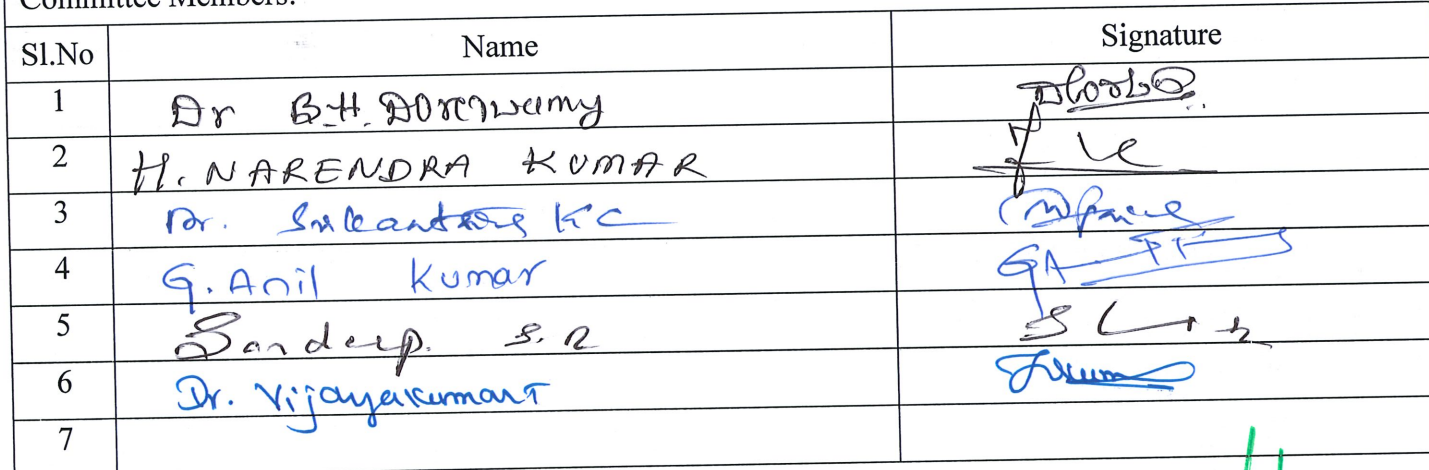 Committee Members:
Sl.No Name Signature
1 Dr B.H. Doreswamy
2 H. NARENDRA KUMAR
3 Dr. Srikantaiah KC
4 G. Anil Kumar
5 Sandeep. S.R
6 Dr. Vijayakumar T
7